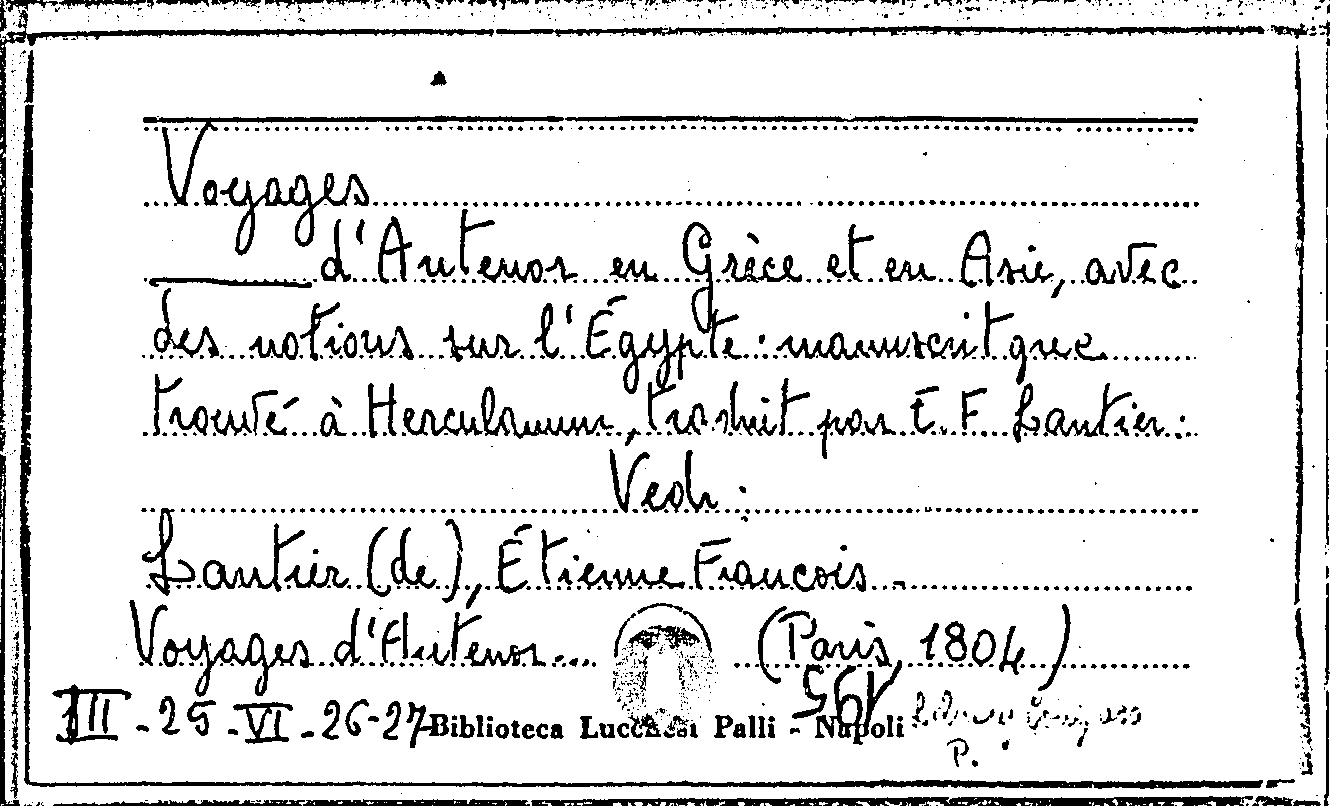 Voyages
d'Antenor en Grèce et en Asie, avec
des notions sur l'Égypte: manuscrit grec
trouvé à Herculanum, traduit par E. F. Lantier:
Vedi:
Lantier (de), Étienne Francois -
Voyages d'Antenor... (Paris, 1804)
III - 25 - VI - 26-27 Biblioteca Lucchesi Palli - Napoli
P.